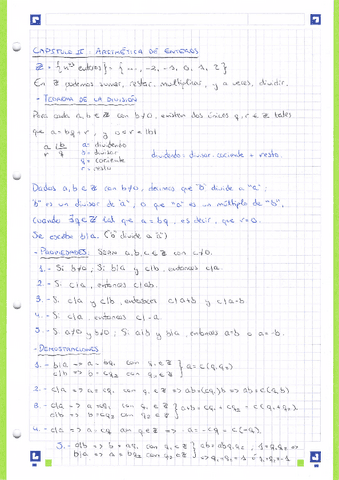 CAPITULO II: ARITMÉTICA DE ENTEROS
ℤ = {nos enteros} = {..., -2, -1, 0, 1, 2}
En ℤ podemos sumar, restar, multiplicar, y a veces, dividir.
- TEOREMA DE LA DIVISIÓN
Para cada a, b ∈ ℤ con b≠0, existen dos únicos q, r ∈ ℤ tales
que a = bq + r, y 0 ≤ r < |b|
a |b a = dividendo
r q b = divisor
q = cociente dividendo = divisor · cociente + resto
r = resto
Dados a, b ∈ ℤ con b≠0, decimos que "b" divide a "a";
"b" es un divisor de "a", o que "a" es un múltiplo de "b",
cuando ∃q ∈ ℤ tal que a = bq, es decir, que r=0.
Se escribe b|a. ("b" divide a "a")
- PROPIEDADES. SEAN a, b, c ∈ ℤ con c≠0.
1.- Si b≠0, Si b|a y c|b, entonces c|a.
2.- Si c|a, entonces c|ab.
3.- Si c|a y c|b, entonces c|a+b y c|a-b.
4.- Si c|a, entonces c|-a.
5.- Si a≠0 y b≠0; Si a|b y b|a, entonces a=b o a=-b.
- DEMOSTRACIONES
1.- b|a => a = bq1 con q1 ∈ ℤ } a = c(q1q2)
c|b => b = cq2 con q2 ∈ ℤ
2.- c|a => a = cq1 con q1 ∈ ℤ => ab = (cq1)b => ab = c(q1b)
3.- c|a => a = cq1 con q1 ∈ ℤ } a+b = cq1 + cq2 = c(q1+q2)
c|b => b = cq2 con q2 ∈ ℤ
4.- c|a => a = cq con q ∈ ℤ => -a = -cq = c(-q)
5.- a|b => b = aq1 con q1 ∈ ℤ } ab = abq1q2; 1 = q1q2 =>
b|a => a = bq2 con q2 ∈ ℤ => q1=q2=1 o q1=q2=-1